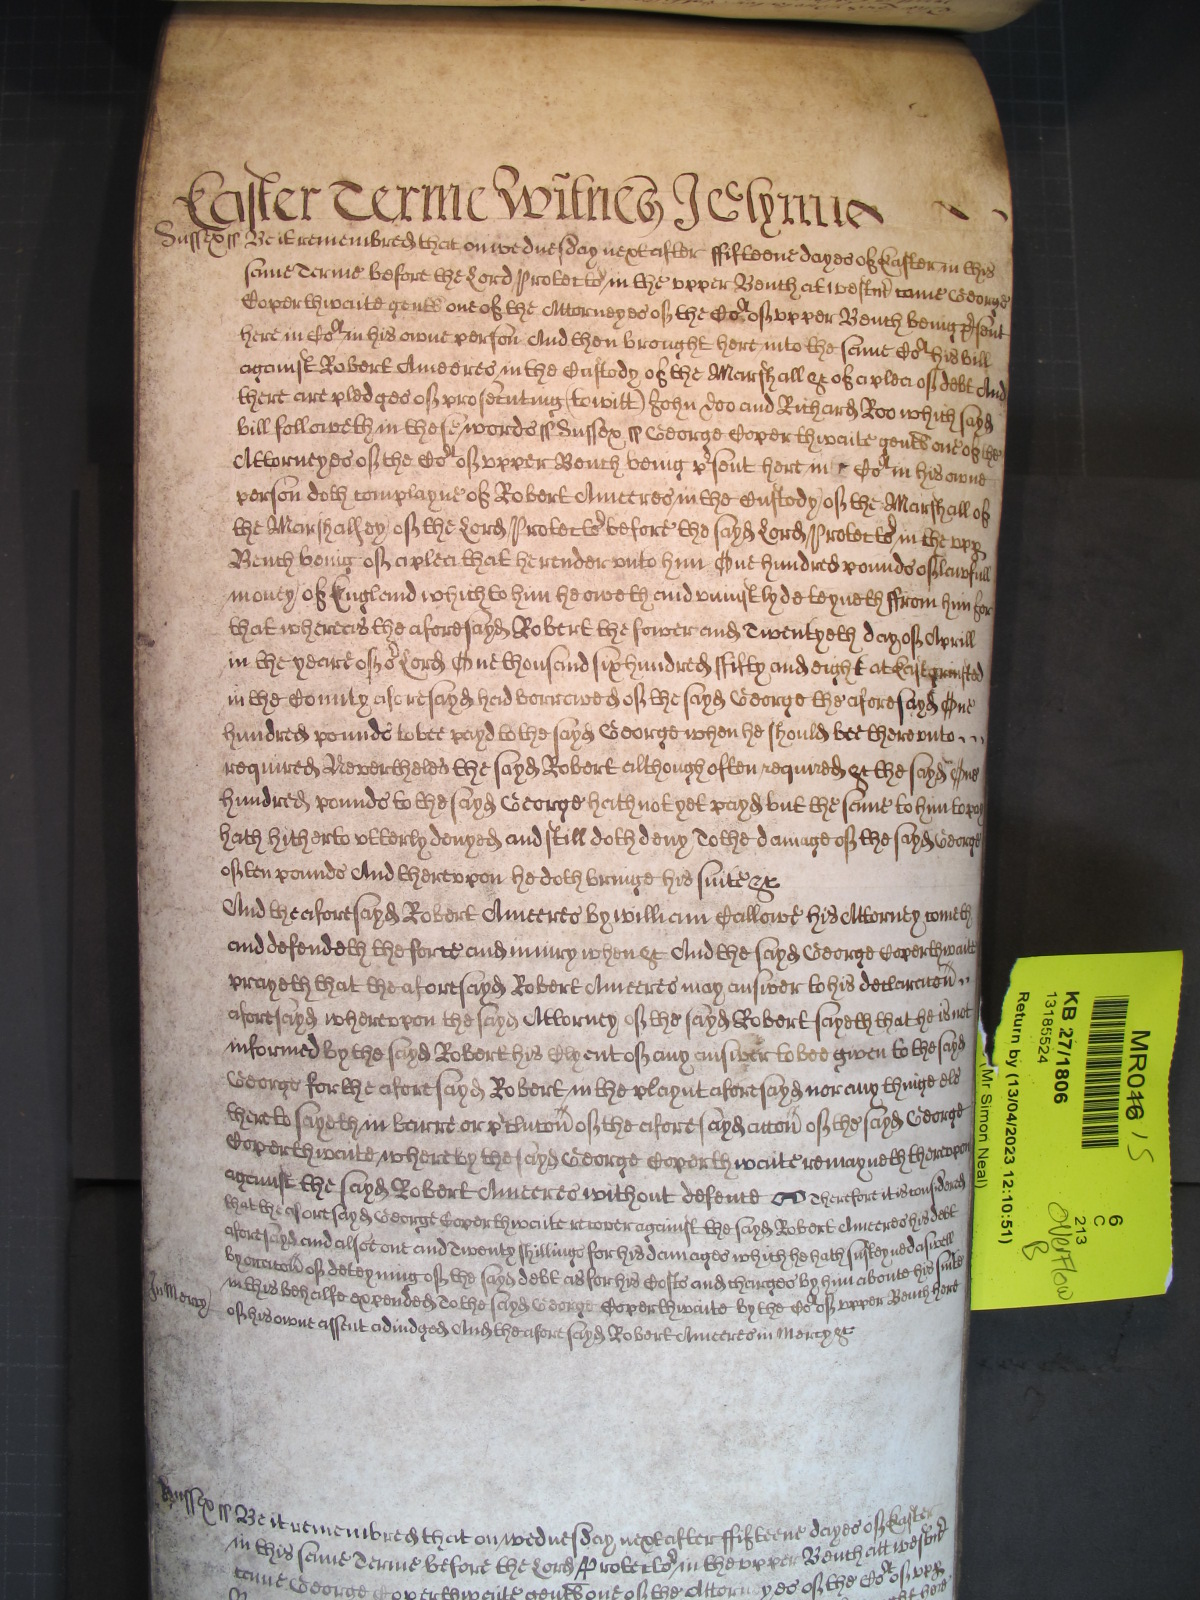 Easter Terme Witnes J Glynne
Sussex ss Be it remembred that on wednesday next after ffifteene dayes of Easter in this
same Terme before the Lord Protector in the upper Bench at westmr came George
Coperthwaite gent one of the Attorneyes of the Cort of upper Bench being pr'sent
here in Cort in his owne person And then brought here into the same Cort his bill
against Robert Ameeres in the Custody of the Marshall &c of a plea of debt And
there are pledges of prosecuting (to witt) John Doo and Richard Roo which sayd
bill followeth in these words ss Sussex ss George Coperthwaite gent one of the
Attorneyes of the Cort of upper Bench being pr'sent here in Cort in his owne
person doth complayne of Robert Ameeres in the Custody of the Marshall of
the Marshallsey of the Lord Protector before the sayd Lord Protector in the upp
Bench being of a plea that he render unto him One hundred pounds of lawfull
money of England which to him he oweth and uniustly deteyneth ffrom him for
that whereas the aforesayd Robert the fower and Twentyeth day of Aprill
in the yeare of or Lord One thousand six hundred ffifty and eight at Eastgrinsted
in the County aforesayd had borrowed of the sayd George the aforesayd One
hundred pounds to bee payd to the sayd George when he should bee thereunto
required Nevertheles the sayd Robert although often required &c the sayd One
hundred pounds to the sayd George hath not yet payd but the same to him to pay
hath hitherto utterly denyed and still doth deny To the damage of the sayd George
of ten pounds And thereupon he doth bringe his suite &c
And the aforesayd Robert Ameeres by william Callowe his Attorney cometh
and defendeth the force and iniury when &c And the sayd George Coperthwaite
prayeth that the aforesayd Robert Ameeres may answer to his declaracon
aforesayd whereupon the sayd Attorney of the sayd Robert sayeth that he is not
informed by the sayd Robert his Clyent of any answer to bee given to the sayd
George for the aforesayd Robert in the playnt aforesayd nor any thinge els
thereto sayeth in barre or pr'clucon of the aforesayd accon of the sayd George
Coperthwaite whereby the sayd George Coperthwaite remayneth thereupon
against the sayd Robert Ameeres without defence Therefore it is considered
that the aforesayd George Coperthwaite recover against the sayd Robert Ameeres his debt
aforesayd and alsoe one and Twenty shillings for his damages which he hath susteyned aswell
by occacon of deteyning of the sayd debt as for his Costs and charges by him aboute his suite
In Mercy in this behalfe expended To the sayd George Coperthwaite by the Cort of upper Bench here
of his owne assent adiudged And the aforesayd Robert Ameeres in Mercy &c
Sussex ss Be it remembred that on wednesday next after ffifteene dayes of Easter
in this same Terme before the Lord Protector in the upper Bench att westmr
came George Coperthwaite gent one of the Attorneyes of the Cort of upp
MR016 / 5
KB 27/1806
13185524
Return by (13/04/2023 12:10:51)
(Mr Simon Neal)
6
C
213
overflow
B